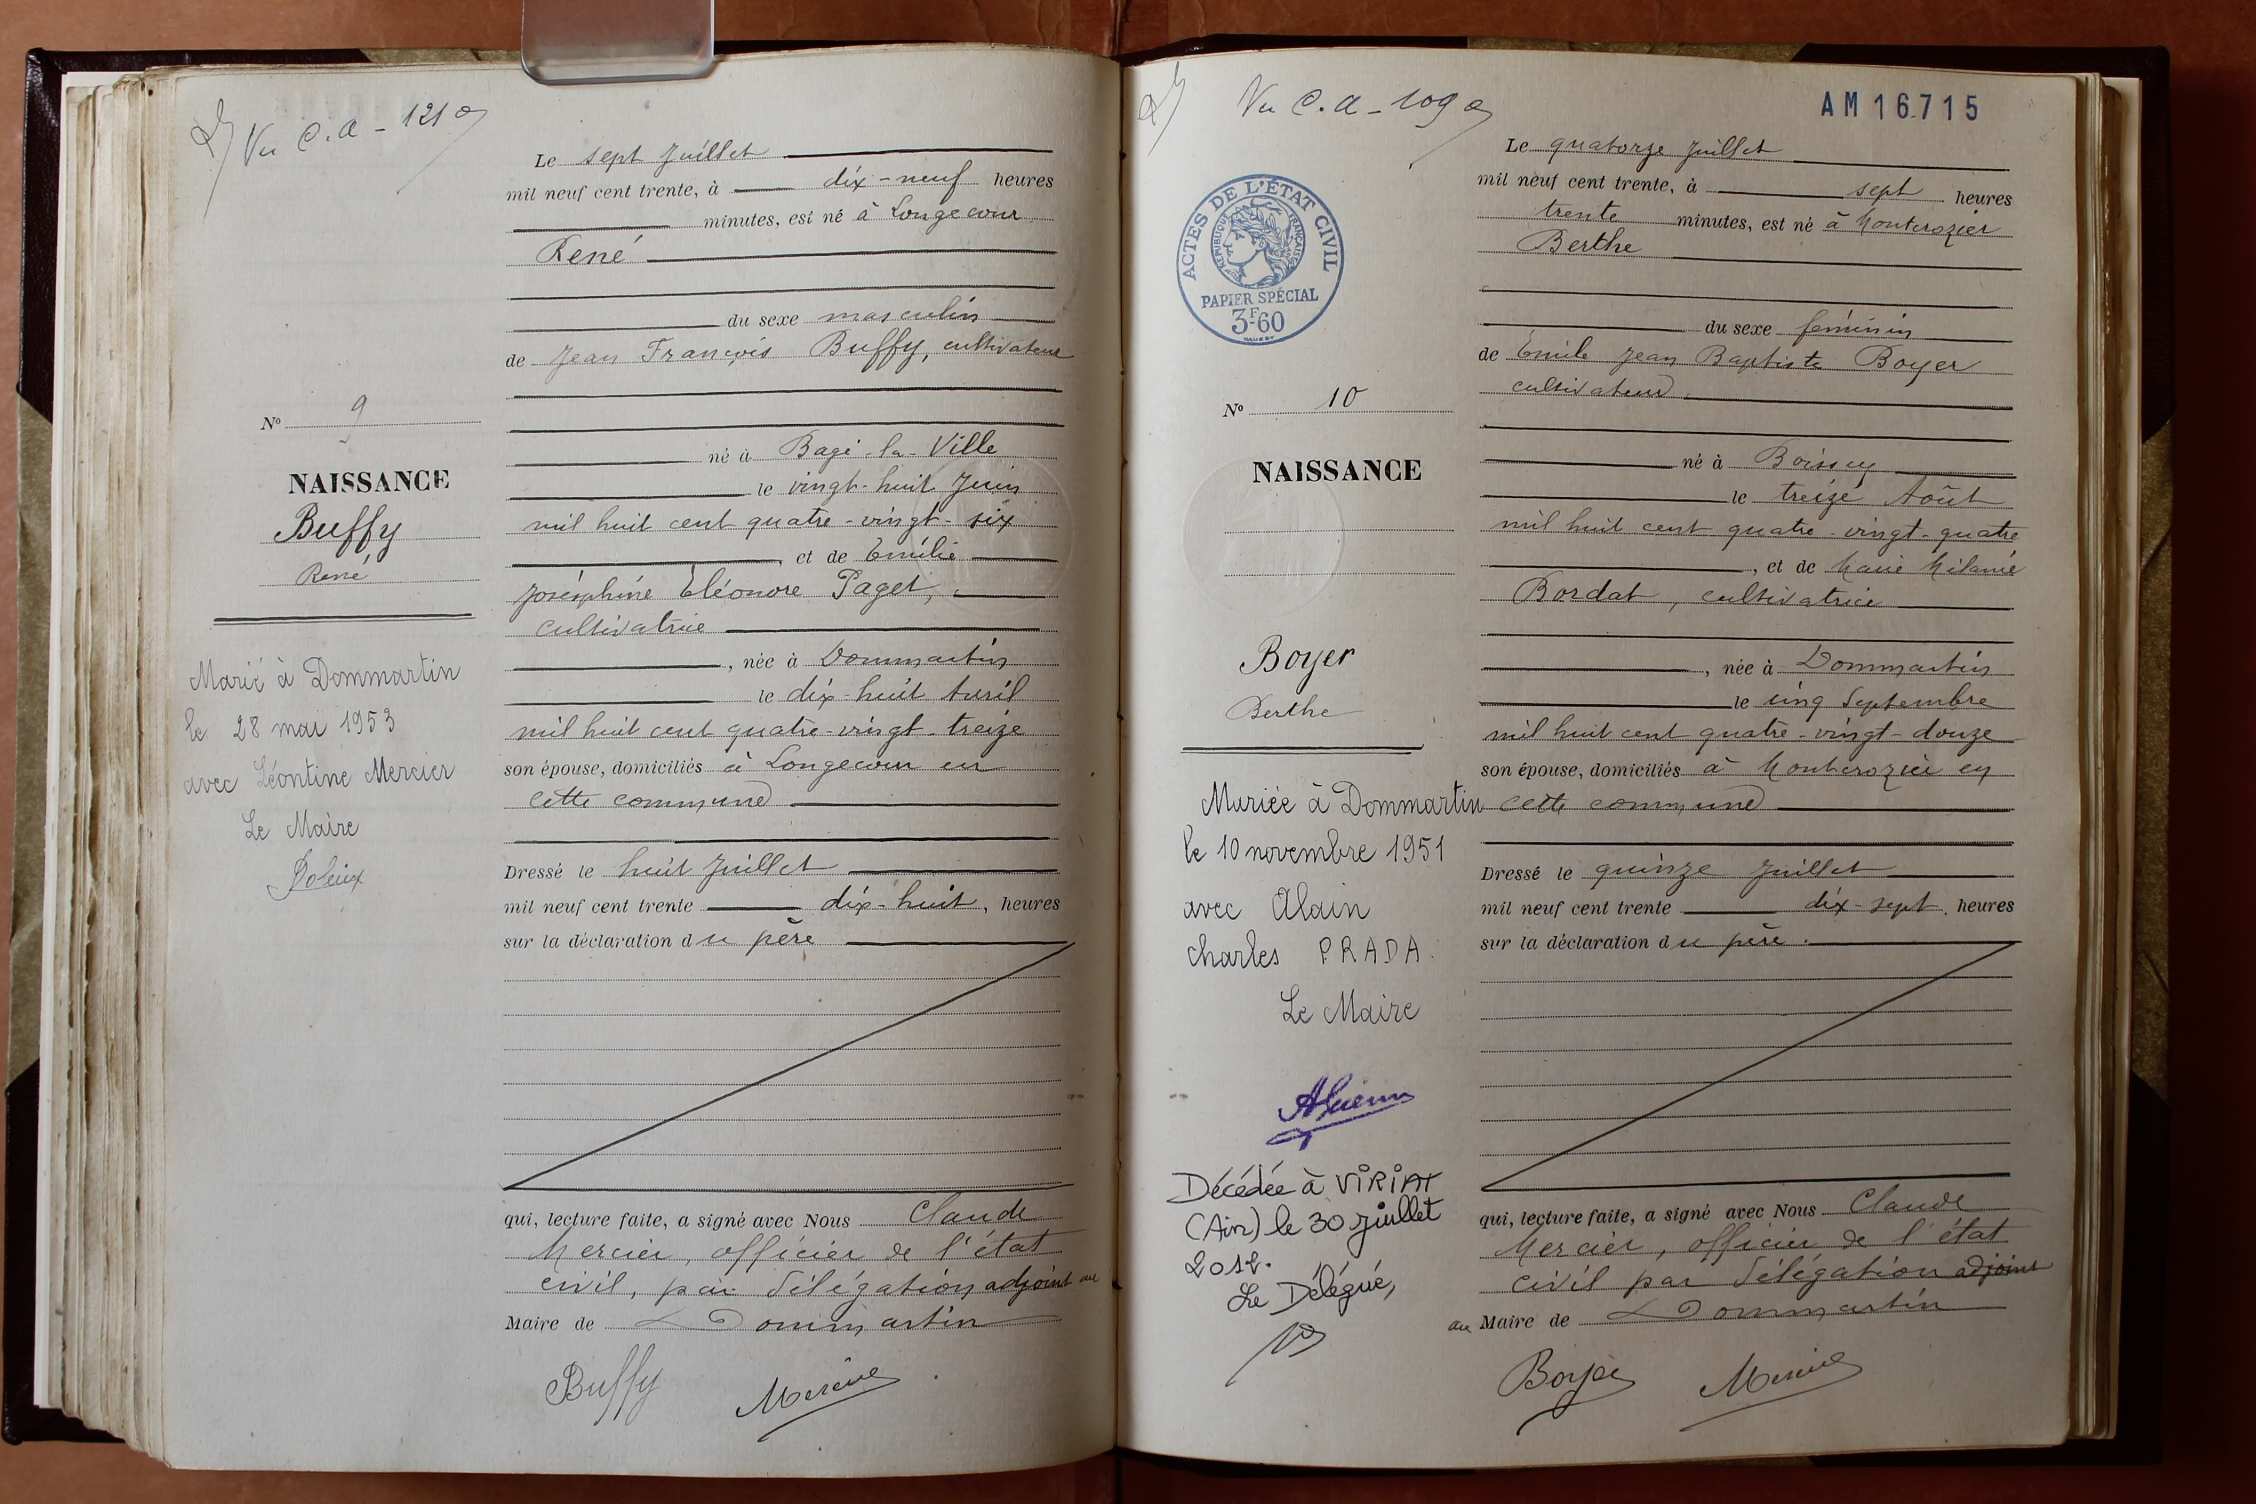 Vu C.A - 121
Le sept Juillet
mil neuf cent trente, à dix-neuf heures
minutes, est né à Longecour
René
du sexe masculin
de Jean François Buffy, cultivateur
né à Bagé-la-Ville
le vingt-huit Juin
mil huit cent quatre-vingt-six
et de Emélie
Joséphine Eléonore Paget,
cultivatrice
, née à Dommartin
le dix-huit Avril
mil huit cent quatre-vingt-treize
son épouse, domiciliés à Longecour en
cette commune
Dressé le huit Juillet
mil neuf cent trente dix-huit, heures
sur la déclaration du père
qui, lecture faite, a signé avec Nous Claude
Mercier, officier de l'état
civil, par délégation adjoint au
Maire de Dommartin
Buffy Mercier
No 9
NAISSANCE
Buffy
René
Marié à Dommartin
le 28 mai 1953
avec Léontine Mercier
Le Maire
Vu C.A - 109
AM 16.715
ACTES DE L'ÉTAT CIVIL
RÉPUBLIQUE FRANÇAISE
PAPIER SPÉCIAL
3F60
Le quatorze Juillet
mil neuf cent trente, à sept heures
trente minutes, est né à Montcrozier
Berthe
du sexe féminin
de Emile Jean Baptiste Boyer
cultivateur
né à Boissey
le treize Août
mil huit cent quatre-vingt-quatre
, et de Marie Mélanie
Bordat, cultivatrice
, née à Dommartin
le cinq Septembre
mil huit cent quatre-vingt-douze
son épouse, domiciliés à Montcrozier en
cette commune
Dressé le quinze Juillet
mil neuf cent trente dix-sept, heures
sur la déclaration du père.
qui, lecture faite, a signé avec Nous Claude
Mercier, officier de l'état
civil par délégation adjoint
au Maire de Dommartin
Boyer Mercier
No 10
NAISSANCE
Boyer
Berthe
Mariée à Dommartin
le 10 novembre 1951
avec Alain
Charles PRADA.
Le Maire
Décédée à VIRIAT
(Ain) le 30 juillet
2012.
Le Délégué,